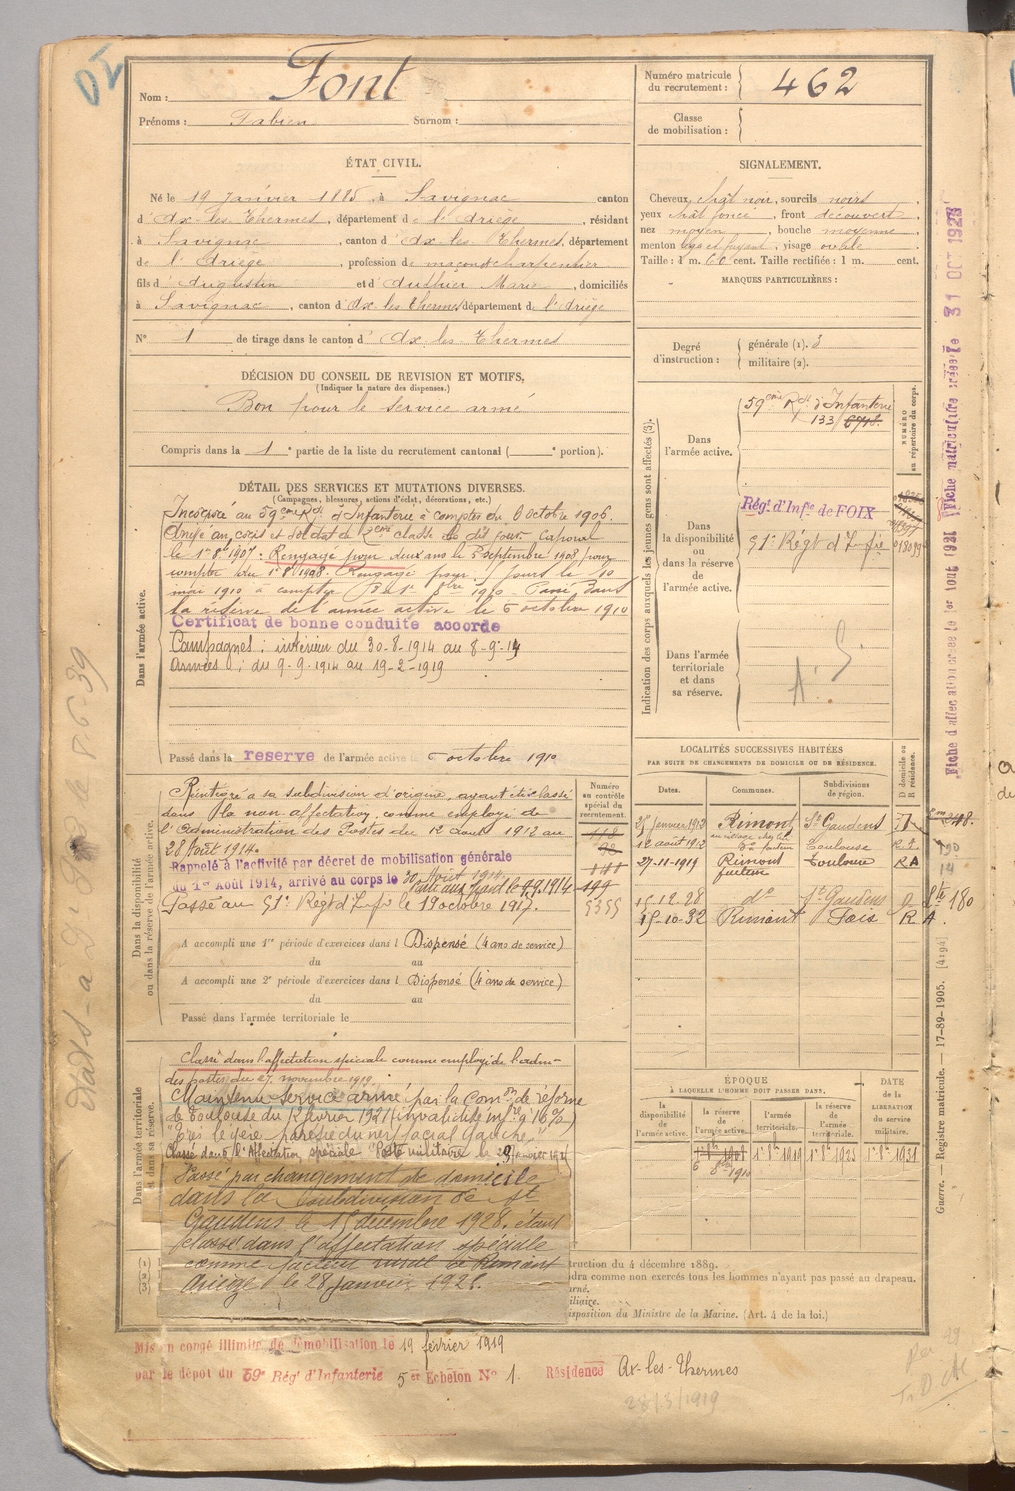 Nom : Font
Prénoms : Fabien Surnom :
Numéro matricule du recrutement : 462
Classe de mobilisation :
ÉTAT CIVIL.
Né le 19 Janvier 1885, à Savignac canton
d' Ax-les-Thermes, département de l'Ariège, résidant
à Savignac, canton d' Ax-les-Thermes, département
de l'Ariège, profession de maçon charpentier
fils d' Augustin et d' Authier Marie, domiciliés
à Savignac, canton d' Ax-les-Thermes département de l'Ariège
N° 1 de tirage dans le canton d' Ax-les-Thermes
SIGNALEMENT.
Cheveux chât noir, sourcils noirs
yeux chât foncé, front découvert
nez moyen, bouche moyenne
menton , visage ovale
Taille : 1 m. 60 cent. Taille rectifiée : 1 m. cent.
MARQUES PARTICULIÈRES :
Degré d'instruction : générale (1). 3
militaire (2).
DÉCISION DU CONSEIL DE REVISION ET MOTIFS.
(Indiquer la nature des dispenses.)
Bon pour le service armé
Compris dans la 1e partie de la liste du recrutement cantonal ( e portion).
DÉTAIL DES SERVICES ET MUTATIONS DIVERSES.
(Campagnes, blessures, actions d'éclat, décorations, etc.)
Dans l'armée active.
Incorporé au 59eme Rgt d'Infanterie à compter du 6 octobre 1906.
Arrivé au corps et soldat de 2eme classe le dit jour. Caporal
le 1er 8bre 1907. Rengagé pour deux ans le 5 septembre 1908 pour
compter du 1er 8bre 1908. Rengagé pour jours le 10
mai 1910 à compter du 1er 8bre 1910. Passé dans
la réserve de l'armée active le 6 octobre 1910
Certificat de bonne conduite accordé
Campagnes : intérieur du 30-8-1914 au 8-9-14
Armées : du 9-9-1914 au 19-2-1919
Passé dans la reserve de l'armée active le 6 octobre 1910
Indication des corps auxquels les jeunes gens sont affectés (3).
NUMÉRO au répertoire du corps.
Dans l'armée active.
59eme Rgt d'Infanterie
133
Dans la disponibilité ou dans la réserve de l'armée active.
Régt d'Infie de FOIX
51e Régt d'Infie
Dans l'armée territoriale et dans sa réserve.
A. S.
LOCALITÉS SUCCESSIVES HABITÉES
PAR SUITE DE CHANGEMENTS DE DOMICILE OU DE RÉSIDENCE.
Dates. Communes. Subdivisions de région. D domicile ou R résidence.
25 Janvier 1912 Rimont St Gaudens
12 août 1912 Toulouse
27-11-1919 Rimont facteur Toulouse RA
15.12.28 do St Gaudens D
15-10-32 Rimont Foix R A.
Dans la disponibilité ou dans la réserve de l'armée active.
Numéro au contrôle spécial du recrutement.
Réintégré à sa subdivision d'origine, ayant été classé
dans la non affectation, comme employé de
l'Administration des Postes du 12 août 1912 au
28 août 1914.
Rappelé à l'activité par décret de mobilisation générale
du 1er Août 1914, arrivé au corps le 30 Août 1914.
Parti aux armées le 9.9.1914
Passé au 51e Régt d'Infie le 19 octobre 1917.
5355
A accompli une 1re période d'exercices dans l Dispensé (4 ans de service)
du au
A accompli une 2e période d'exercices dans l Dispensé (4 ans de service)
du au
Passé dans l'armée territoriale le
Dans l'armée territoriale et dans sa réserve.
Classé dans l'affectation spéciale comme employé de l'adm-
des postes du 27 novembre 1919.
Maintenu service armé par la Comon de réforme
de Toulouse du 12 février 1921 (invalidité infre à 10%)
"Très légère parésie du nerf facial gauche."
Classé dans l'Affectation spéciale "Poste militaire" le 29 janvier 192
Passé par changement de domicile
dans la subdivision de St
Gaudens le 15 décembre 1928, étant
classé dans l'affectation spéciale
comme facteur rural à Rimont
Ariège le 28 janvier 192
ÉPOQUE
À LAQUELLE L'HOMME DOIT PASSER DANS,
la disponibilité de l'armée active. la réserve de l'armée active. l'armée territoriale. la réserve de l'armée territoriale.
DATE de la LIBÉRATION du service militaire.
1er 8bre 1919 1er 8bre 1925 1er 8bre 1931
6 8bre 1910
truction du 4 décembre 1889.
dra comme non exercés tous les hommes n'ayant pas passé au drapeau.
urné.
ilitaire.
isposition du Ministre de la Marine. (Art. 4 de la loi.)
Mis en congé illimité de démobilisation le 19 février 1919
par le dépôt du 59e Rég' d'Infanterie 5er Echelon N° 1. Résidence Ax-les-Thermes
28/3/1919
Fiche matricule créée le 31 OCT 1928
Guerre. — Registre matricule. — 17-89-1905. [4194]